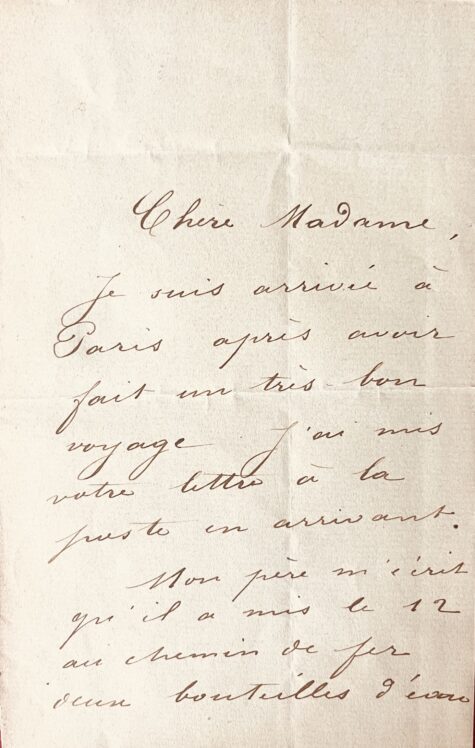 Chère Madame,
Je suis arrivée à
Paris après avoir
fait un très bon
voyage J'ai mis
votre lettre à la
poste en arrivant.
Mon père m'écrit
qu'il a mis le 12
au chemin de fer
deux bouteilles d'eau